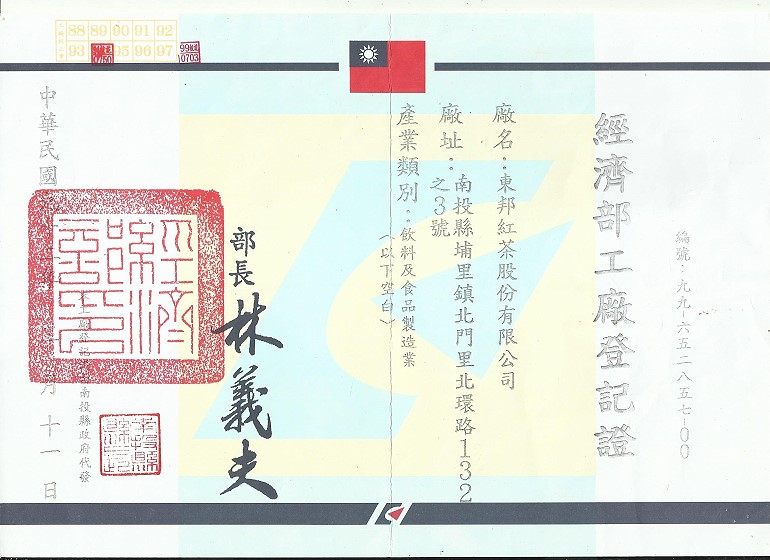 經濟部工廠登記證
編號：九九-六五二八五七-00
廠名：東邦紅茶股份有限公司
廠址：南投縣埔里鎮北門里北環路132
之3號
產業類別：飲料及食品製造業
（以下空白）
部長 林義夫
南投縣政府代發
中華民國
月十一日
88 89 90 91 92
93 95 96 97